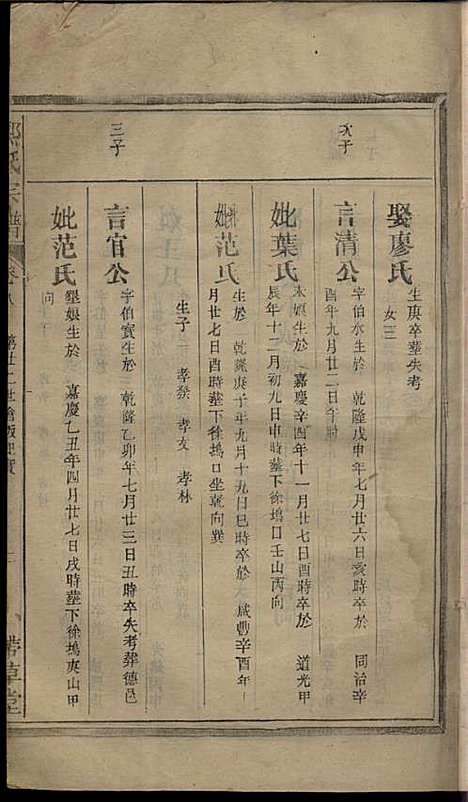 娶廖氏
生庚卒塟失考
女三
次子
言清公
字伯水生於　乾隆戊申年七月廿六日亥時卒於　同治辛
酉年九月廿二日午時
妣葉氏
娘生於　嘉慶辛酉年十一月廿七日酉時卒於　道光甲
辰年十二月初九日申時塟下徐塢口壬山丙向
妣范氏
生於　乾隆庚子年九月十九日巳時卒於　咸豐辛酉年
月廿七日酉時塟下徐塢口坐乾向巽
生子三　孝發　孝友　孝林
三子
言官公
字伯賓生於　乾隆乙卯年七月廿三日丑時卒失考葬德邑
妣范氏
翠娘生於　嘉慶乙丑年四月廿七日戌時塟下徐塢庚山甲
向
氏宗譜
卷八